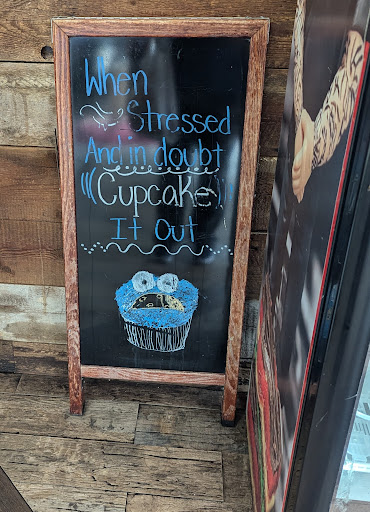 When
Stressed
And in doubt
Cupcake
It Out